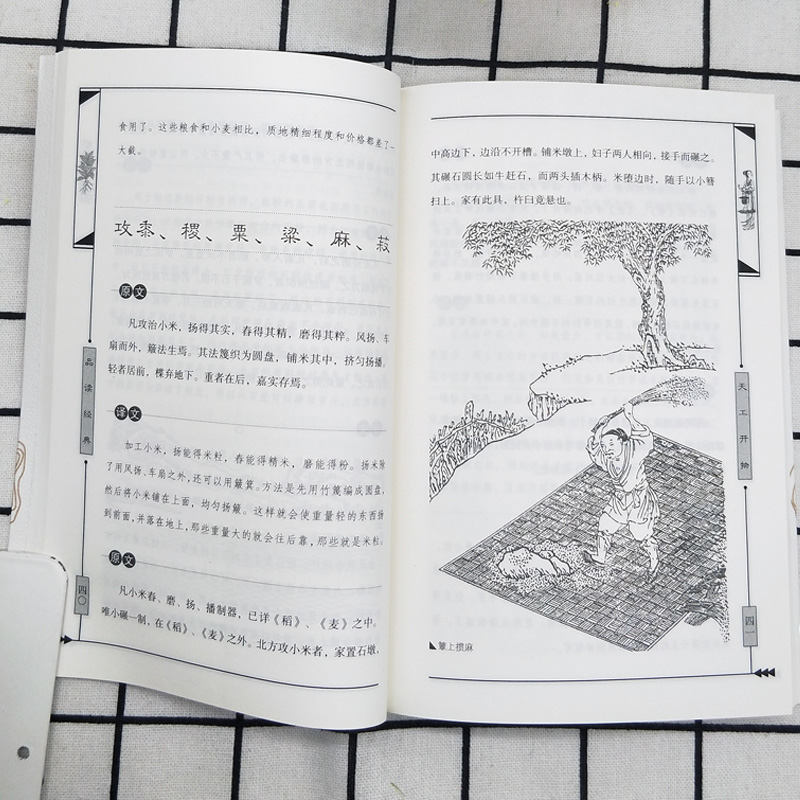 食用了。这些粮食和小麦相比，质地精细程度和价格都差了一
大截。
攻黍、稷、粟、粱、麻、菽
原文
凡攻治小米，扬得其实，舂得其精，磨得其粹。风扬、车
扇而外，簸法生焉。其法篾织为圆盘，铺米其中，挤匀扬播。
轻者居前，楪弃地下。重者在后，嘉实存焉。
译文
加工小米，扬能得米粒，舂能得精米，磨能得粉。扬米除
了用风扬、车扇之外，还可以用簸箕。方法是先用竹篾编成圆盘，
然后将小米铺在上面，均匀扬簸。这样就会使重量轻的东西扬
到前面，并落在地上，那些重量大的就会往后靠，那些就是米粒。
原文
凡小米舂、磨、扬、播制器，已详《稻》、《麦》之中。
唯小碾一制，在《稻》、《麦》之外。北方攻小米者，家置石墩，
品读经典
四〇
中高边下，边沿不开槽。铺米墩上，妇子两人相向，接手而碾之。
其碾石圆长如牛赶石，而两头插木柄。米堕边时，随手以小篲
扫上。家有此具，杵臼竟悬也。
天工开物
四一
上攒麻